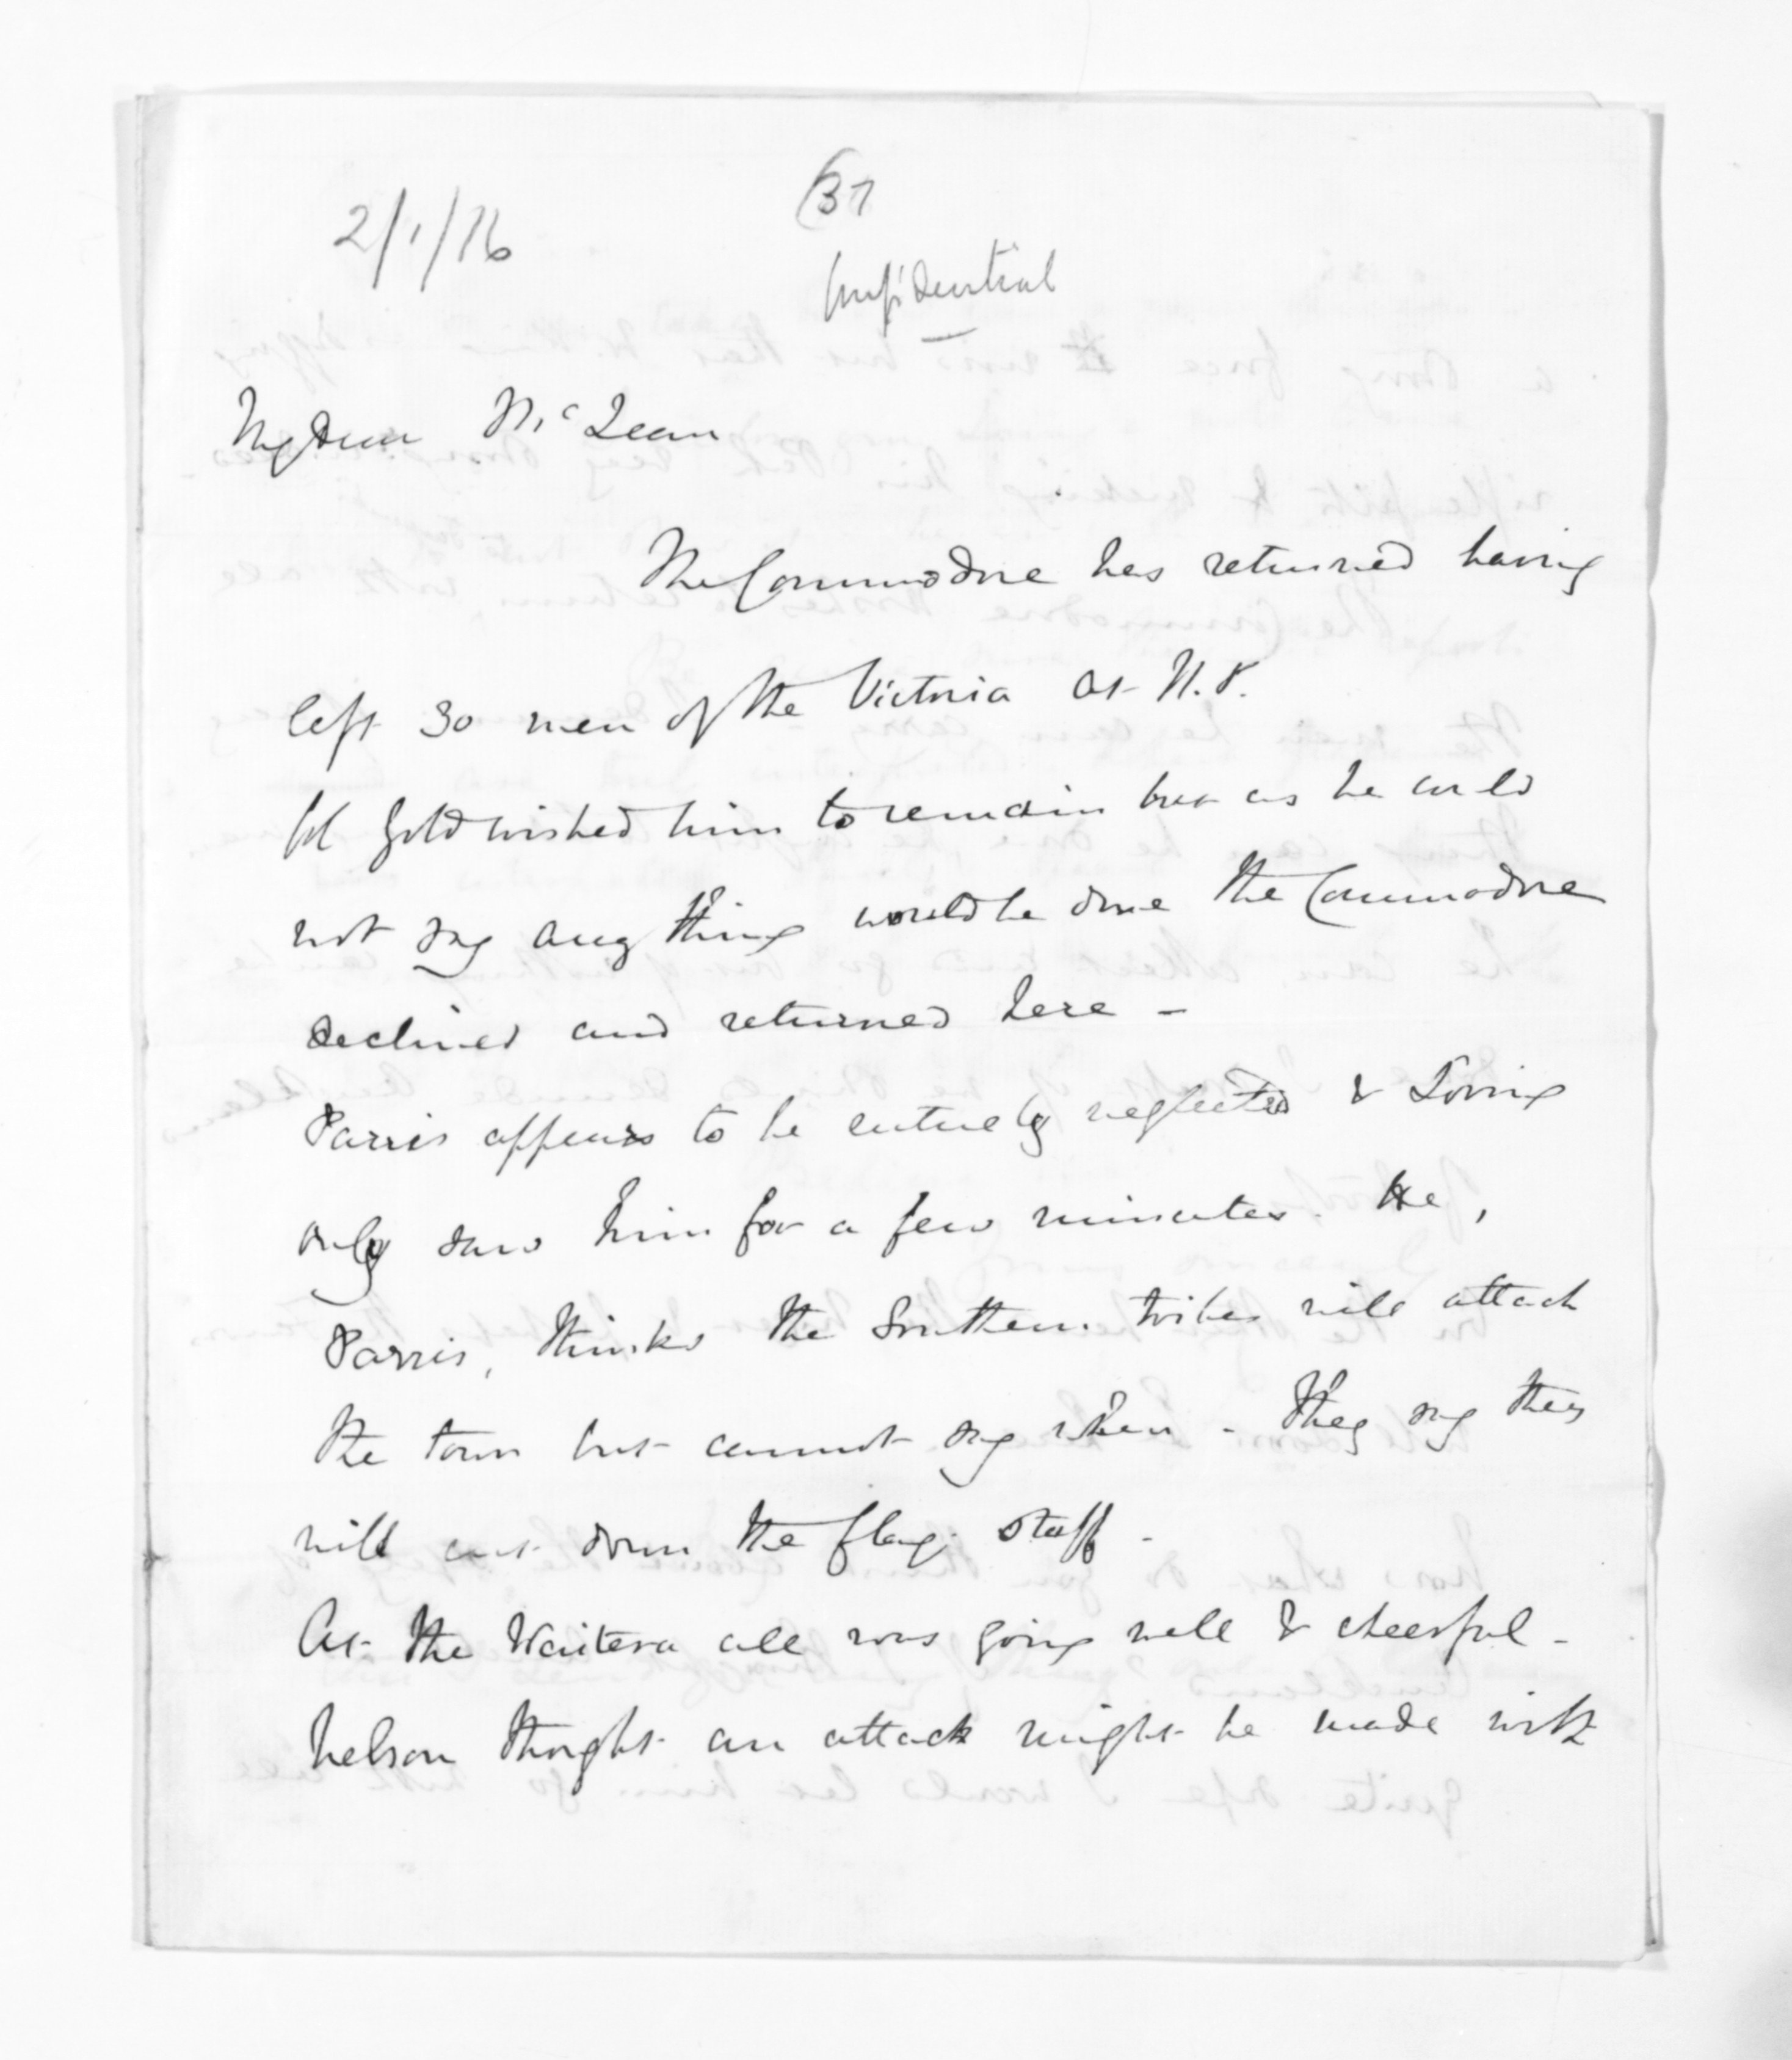 2/1/76
37
Confidential
My dear McLean
The Commodore has returned having
left 30 men of the Victoria at N.P.
Col Gold wished him to remain but as he could
not say any thing would be done the Commodore
declined and returned here -
Parris appears to be entirely neglected & Loring
only saw him for a few minutes. He,
Parris, thinks the Southern tribes will attack
the town but cannot say when - they say they
will cut down the flag staff -
At the Waitera all was going well & cheerful -
Nelson thought an attack might be made with